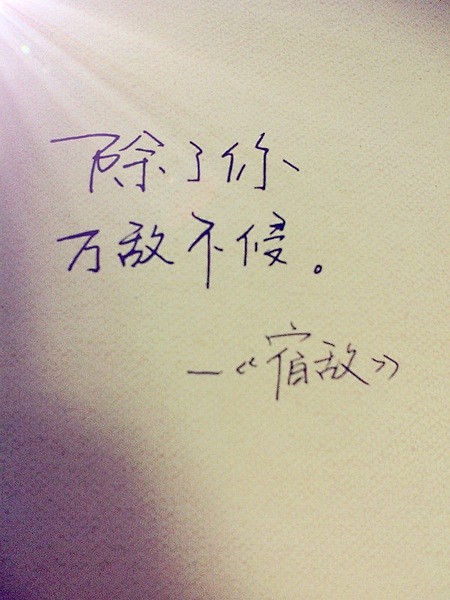 除了你、
万敌不侵。
—《宿敌》